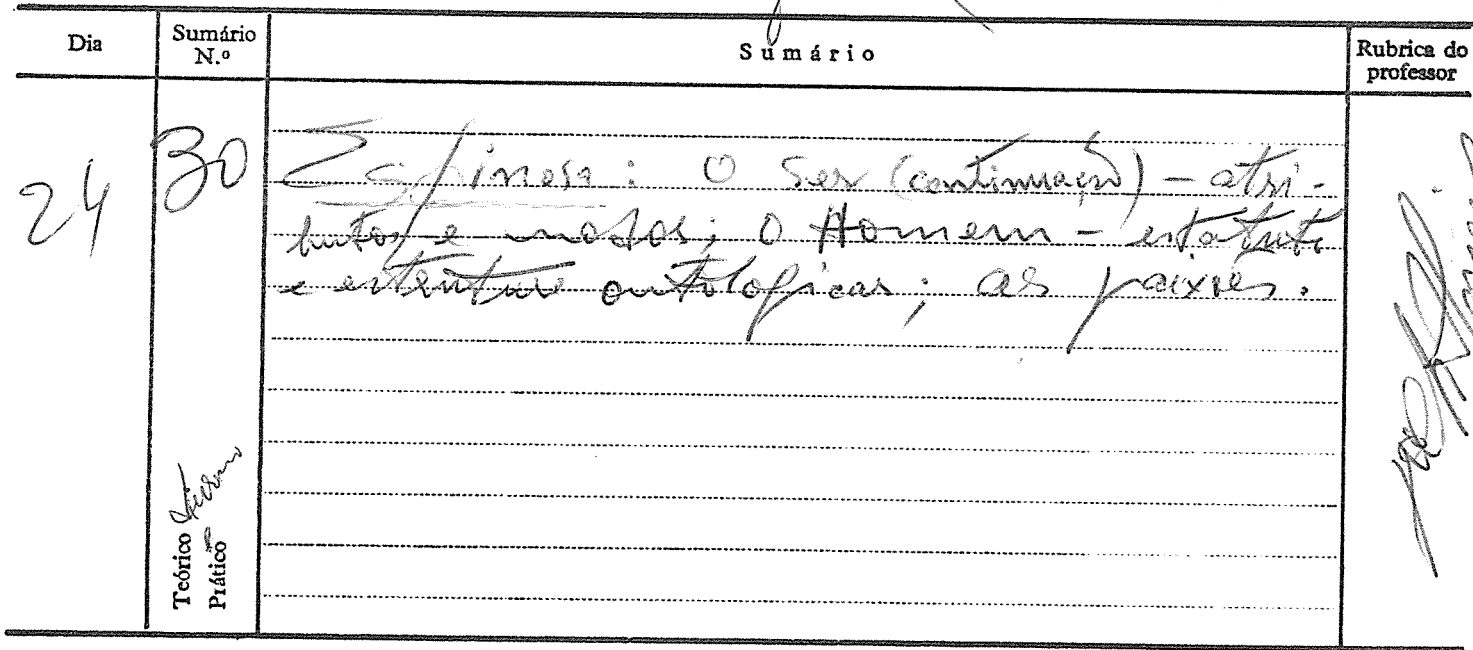 Dia
Sumário N.º
Sumário
Rubrica do professor
24
30
Espinosa: O Ser (continuação) – atri-
butos e modos; O Homem – estatuto
e estrutura ontológicas; as paixões.
Teórico
Prático